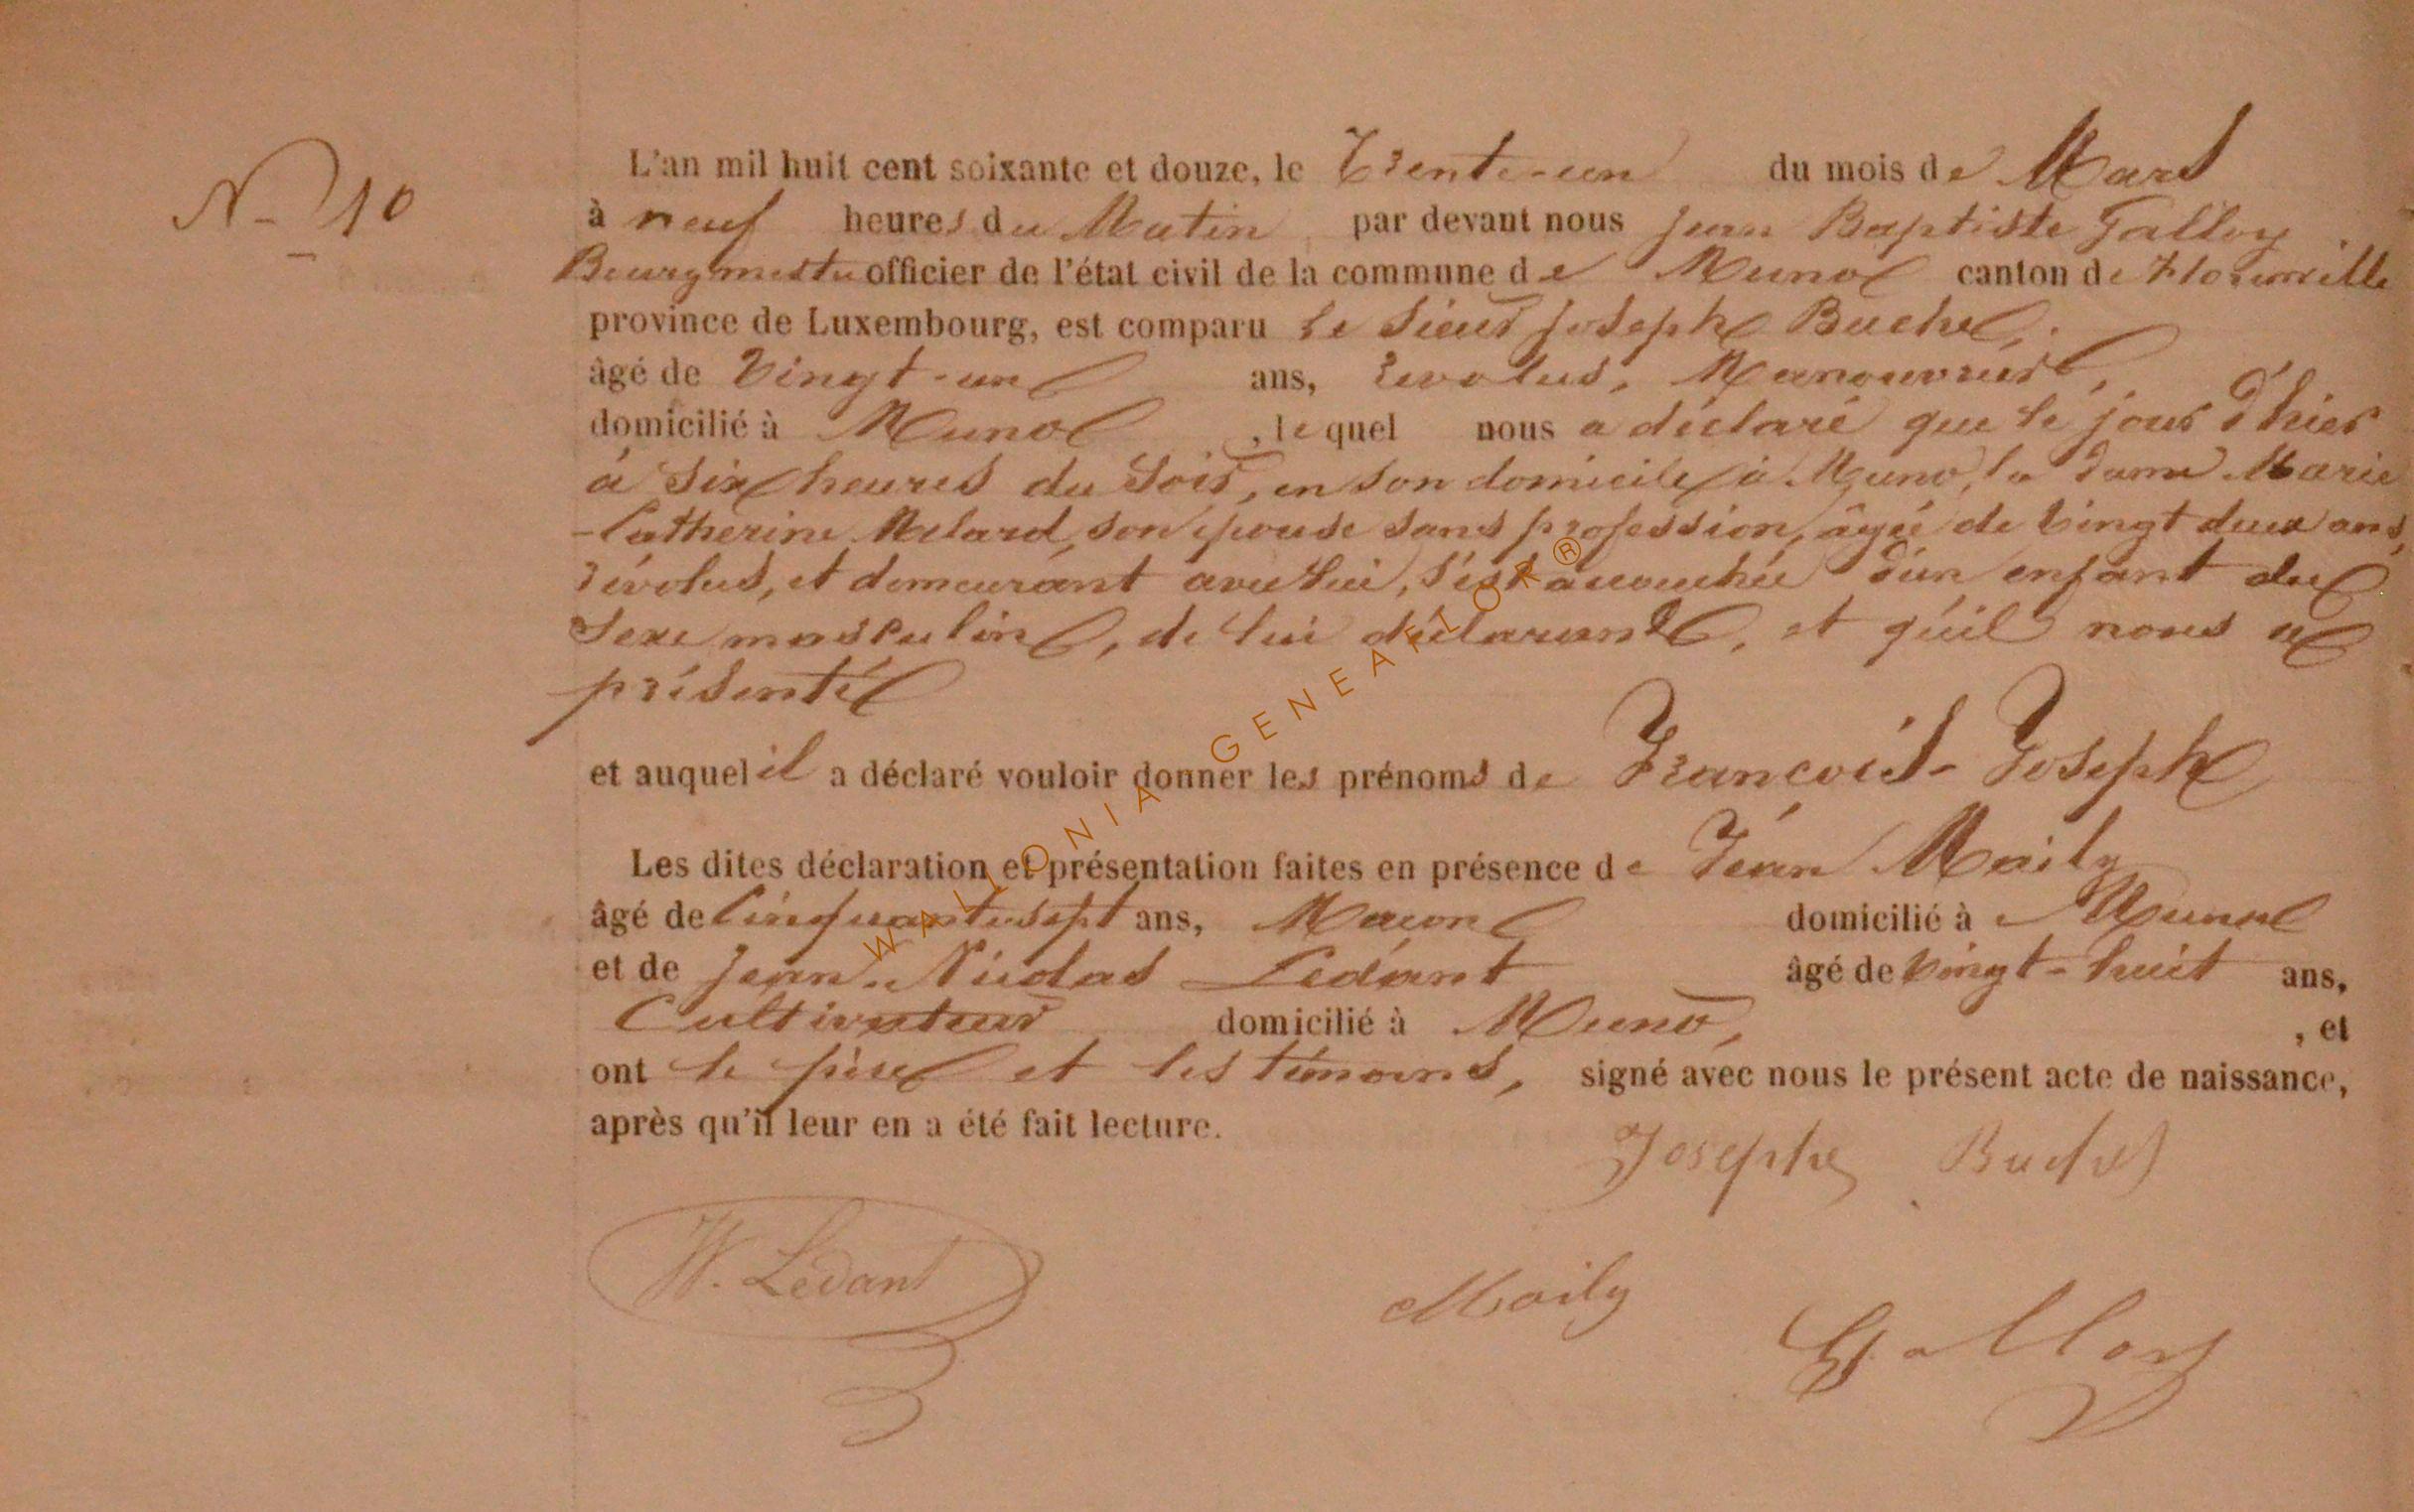 N° 10
L'an mil huit cent soixante et douze, le Trente-un du mois de Mars
à neuf heures du Matin par devant nous Jean Baptiste Galloy
Bourgmestre officier de l'état civil de la commune de Muno canton de Florenville
province de Luxembourg, est comparu le Sieur Joseph Buche,
âgé de Vingt-un ans, révolus, Manouvrier,
domicilié à Muno, lequel nous a déclaré que le jour d'hier
à Six heures du Soir, en son domicile à Muno, la dame Marie
-Catherine Melard, son épouse sans profession, âgée de vingt deux ans,
révolus, et demeurant avec lui, s'est accouchée d'un enfant du
Sexe masculin, de lui déclarant, et qu'il nous a
présenté
et auquel il a déclaré vouloir donner les prénoms de François-Joseph
Les dites déclaration et présentation faites en présence de Jean Maily
âgé de Cinquante sept ans, Maçon domicilié à Muno
et de Jean-Nicolas Ledant âgé de Vingt-huit ans,
Cultivateur domicilié à Muno, , et
ont le père et les témoins, signé avec nous le présent acte de naissance,
après qu'il leur en a été fait lecture.
Josephe Buche
N. Ledant
Maily
Galloy
WALLONIA GENEAFLOR®